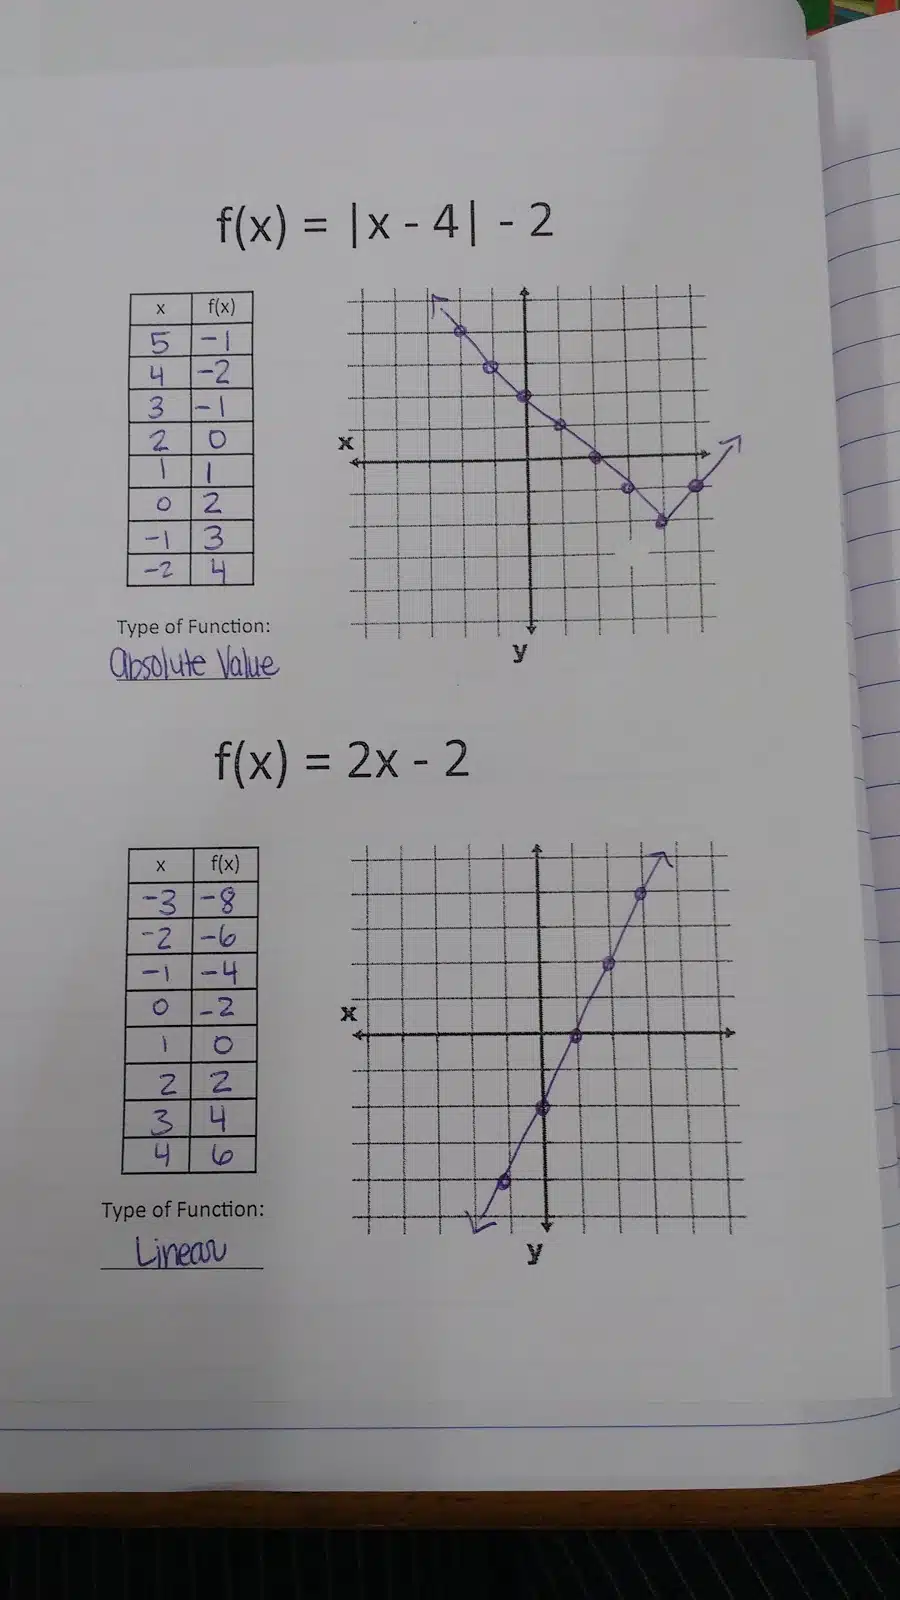 f(x) = |x - 4| - 2
x f(x)
5 -1
4 -2
3 -1
2 0
1 1
0 2
-1 3
-2 4
x
y
Type of Function:
Absolute Value
f(x) = 2x - 2
x f(x)
-3 -8
-2 -6
-1 -4
0 -2
1 0
2 2
3 4
4 6
x
y
Type of Function:
Linear